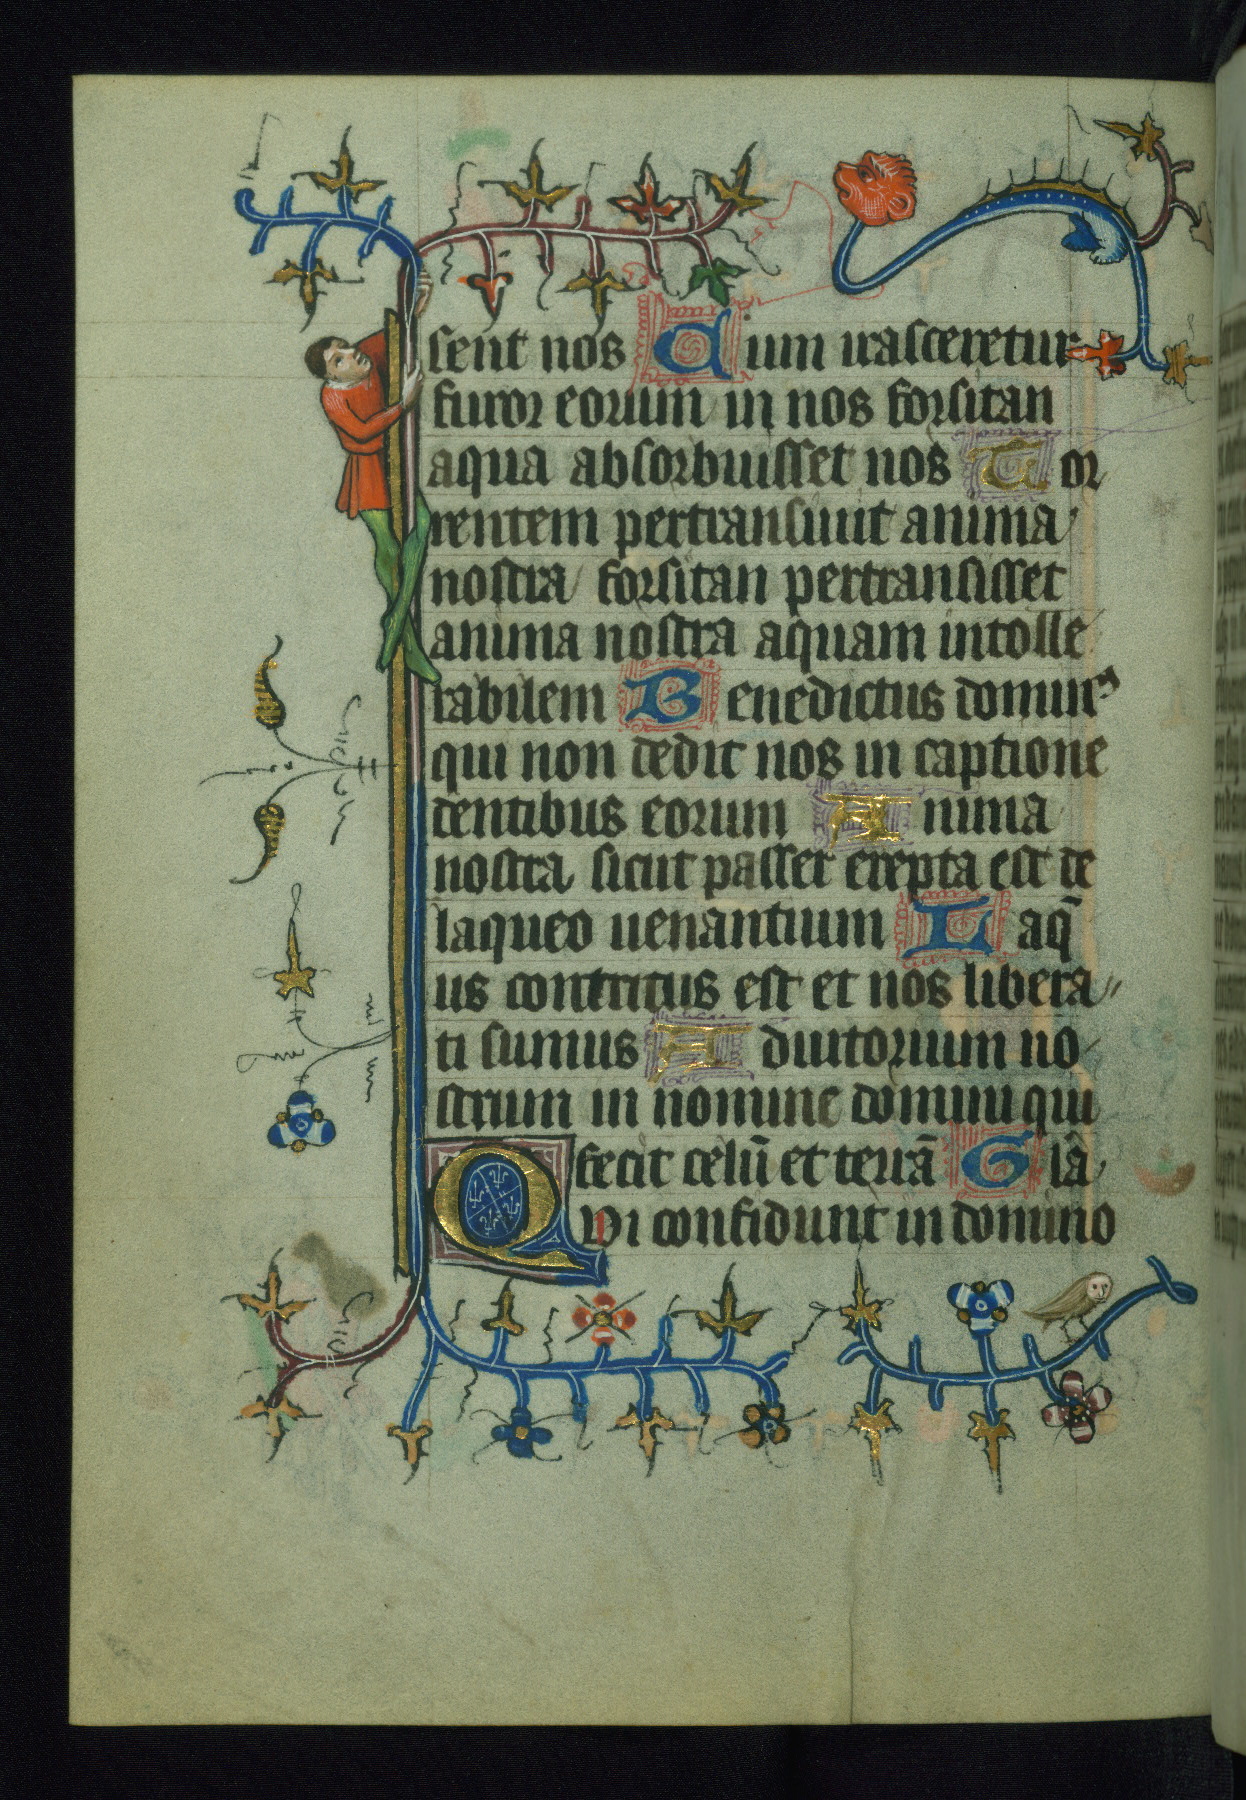 sent nos Cum irasceretur
furor eorum in nos forsitan
aqua absorbuisset nos Tor
rentem pertransivit anima
nostra forsitan pertransisset
anima nostra aquam intolle
rabilem Benedictus dominꝰ
qui non dedit nos in captione
dentibus eorum Anima
nostra sicut passer erepta est de
laqueo uenantium Laq̄
us contritus est et nos libera
ti sumus Adiutorium no
strum in nomine domini qui
fecit celū et terrā Glā
Qvi confidunt in domino